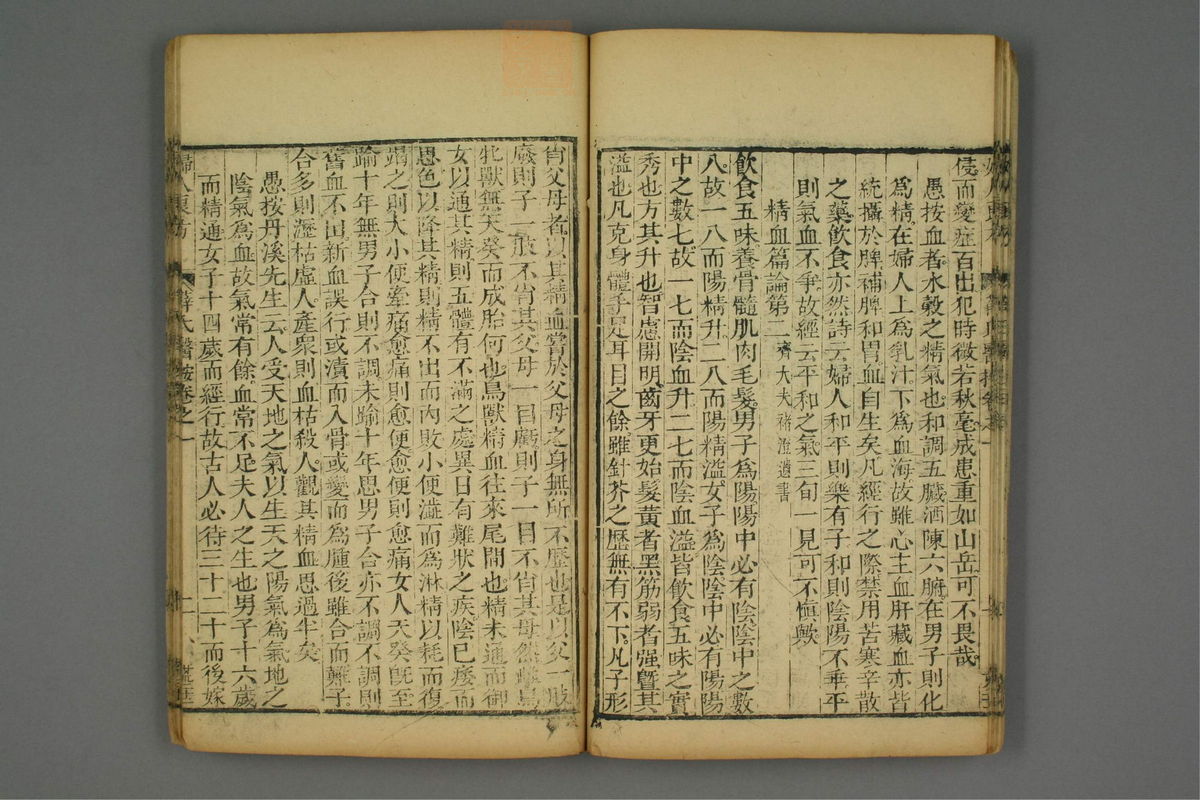 侵而變症百出犯時微若秋毫成患重如山岳可不畏哉
愚按血者水榖之精氣也和調五臟洒陳六腑在男子則化
爲精在婦人上爲乳汁下爲血海故雖心主血肝藏血亦皆
統攝於脾補脾和胃血自生矣凡經行之際禁用苦寒辛散
之藥飲食亦然詩云婦人和平則樂有子和則陰陽不乖平
則氣血不爭故經云平和之氣三旬一見可不慎歟
精血篇論第二 齊大夫褚澄遺書
飲食五味養骨髓肌肉毛髮男子爲陽陽中必有陰陰中之數
八故一八而陽精升二八而陽精溢女子爲陰陰中必有陽陽
中之數七故一七而陰血升二七而陰血溢皆飲食五味之實
秀也方其升也智慮開明齒牙更始髮黃者黑筋弱者强曁其
溢也凡充身體手足耳目之餘雖針芥之歷無有不下凡子形
肖父母者以其精血嘗於父母之身無所不歷也是以父一肢
廢則子一肢不肖其父母一目虧則子一目不肖其母然雌鳥
牝獸無天癸而成胎何也鳥獸精血往來尾間也精未通而御
女以通其精則五體有不滿之處異日有難狀之疾陰已痿而
思色以降其精則精不出而內敗小便澁而爲淋精以耗而復
竭之則大小便牽痛愈痛則愈便愈便則愈痛女人天癸旣至
踰十年無男子合則不調未踰十年思男子合亦不調不調則
舊血不出新血誤行或漬而入骨或變而爲腫後雖合而難子
合多則瀝枯虛人產衆則血枯殺人觀其精血思過半矣
愚按丹溪先生云人受天地之氣以生天之陽氣爲氣地之
陰氣爲血故氣常有餘血常不足夫人之生也男子十六歲
而精通女子十四歲而經行故古人必待三十二十而後嫁
婦人良方 薛氏醫按卷之一